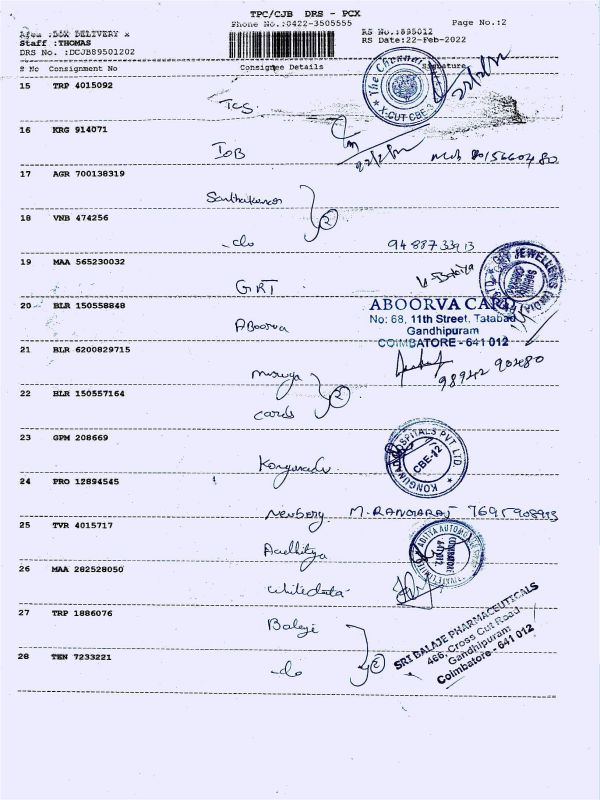 TPC/CJB DRS - PCX
Phone No.:0422-3505555
Page No.:2
Area :BOX DELIVERY x
RS No.:895012
Staff :THOMAS
RS Date:22-Feb-2022
DRS No. :DCJB89501202
S No Consignment No Consignee Details Signature
15 TRP 4015092
The Chennai
X-CUT CBE-
TCS.
16 KRG 914071
IOB
17 AGR 700138319
Santhakumar
18 VNB 474256
2
-do
19 MAA 565230032
GRT
GRT JEWELLERS (INDIA)
20 BLR 150558848
Aboorva
ABOORVA CARD
No: 68, 11th Street, Tatabad
Gandhipuram
COIMBATORE - 641 012
21 BLR 6200829715
98942 90480
22 BLR 150557164
2
cards
23 GPM 208669
Kongunadu
KONGUNAD HOSPITALS PVT LTD.
CBE-12
24 PRO 12894545
Newberry M. RANGARAJ
25 TVR 4015717
Aadhitya
ADITYA AUTOMO
COIMBATORE
641 012
26 MAA 282528050
Whitedata
27 TRP 1886076
Balaji
SRI BALAJE PHARMACEUTICALS
466, Cross Cut Road
Gandhipuram
Coimbatore - 641 012
28 TEN 7233221
-do
2